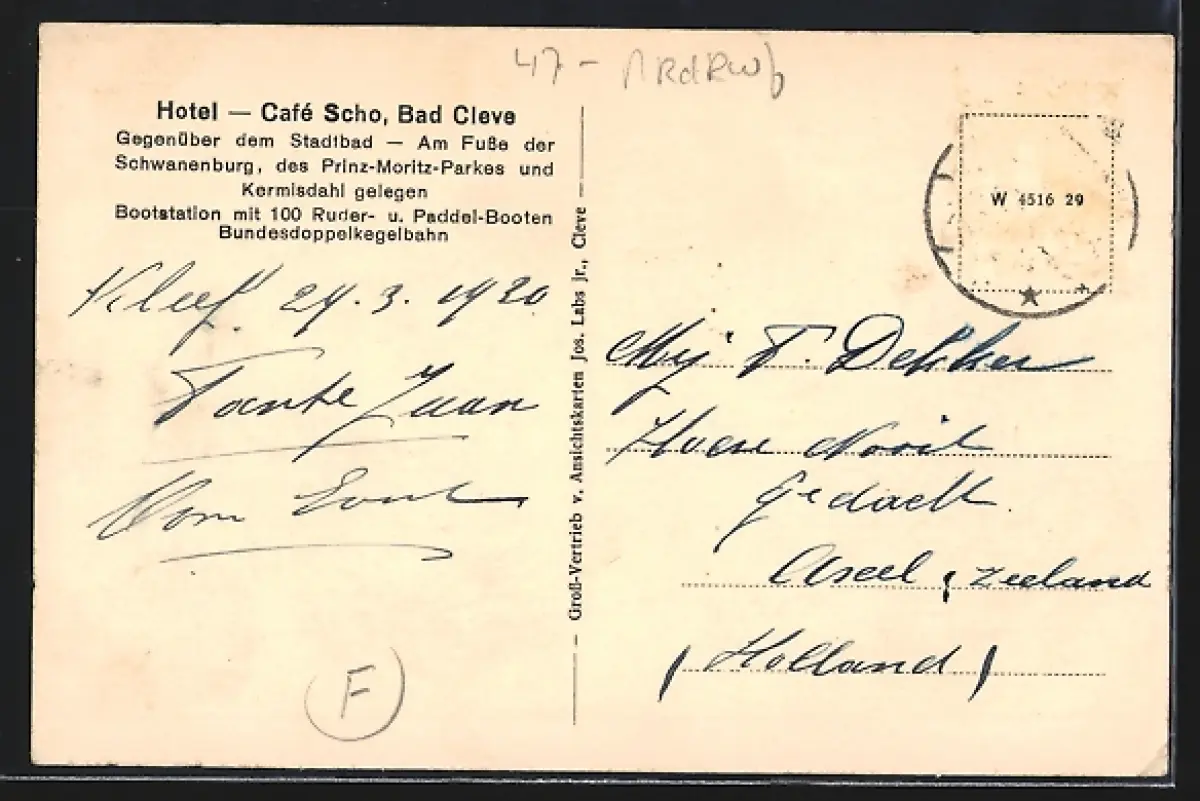 47 -
Hotel — Café Scho, Bad Cleve
Gegenüber dem Stadtbad — Am Fuße der
Schwanenburg, des Prinz-Moritz-Parkes und
Kermisdahl gelegen
Bootstation mit 100 Ruder- u. Paddel-Booten
Bundesdoppelkegelbahn
Kleef 29. 3. 1920
Tante
Groß-Vertrieb v. Ansichtskarten Jos. Labs jr., Cleve
W 4516 29
Mej T. Dekker
Gedacht
Zeeland
(Holland)
F